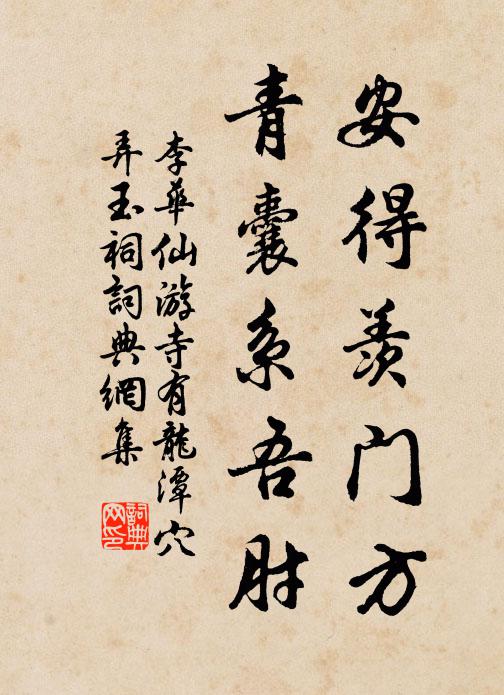 安得羨門方
青囊系吾肘
李華仙游寺有龍潭穴
弄玉祠詞典網集
詞典
网印